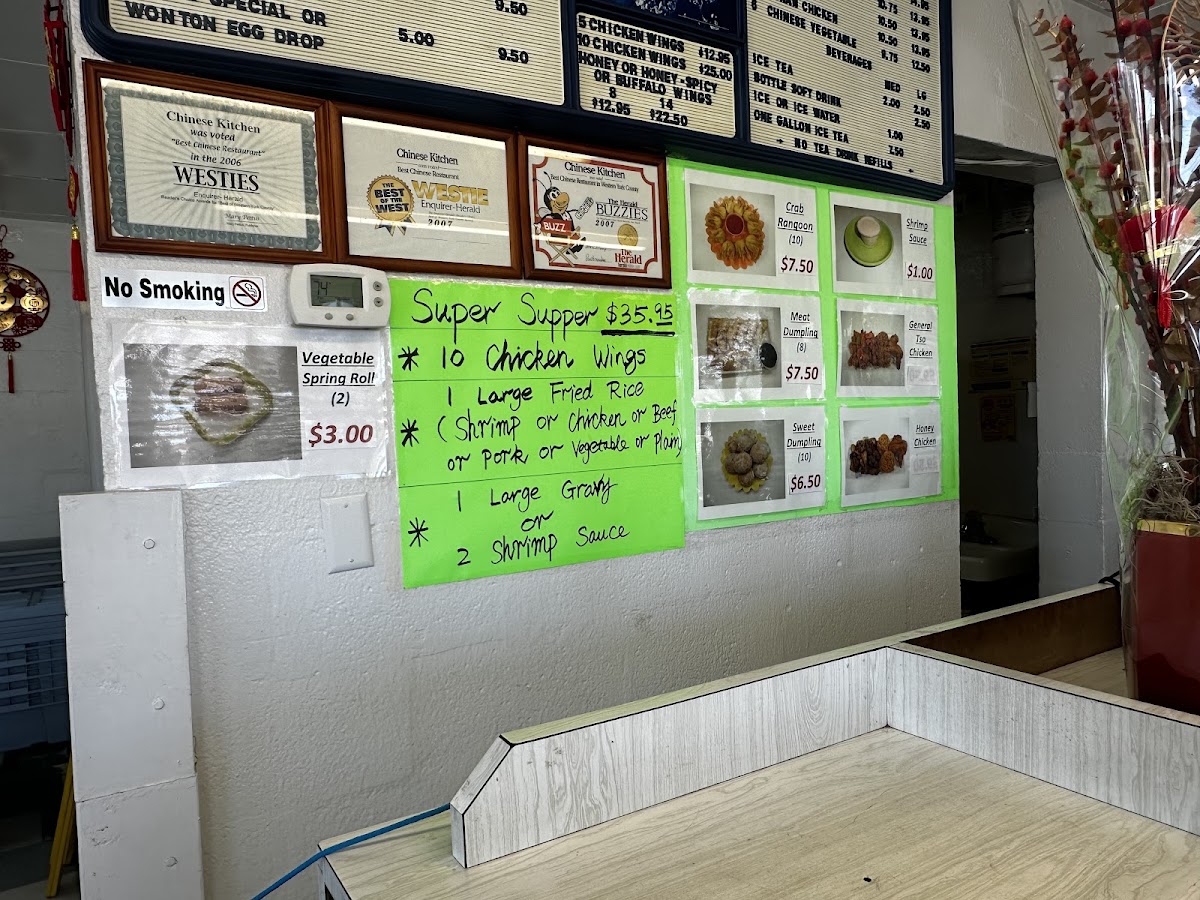 SPECIAL OR 9.50
WONTON EGG DROP 5.00 9.50
5 CHICKEN WINGS $12.95
10 CHICKEN WINGS $25.00
HONEY OR HONEY-SPICY
OR BUFFALO WINGS
8 14
$12.95 $22.50
CHICKEN 10.75
8 CHINESE VEGETABLE 10.50 12.95
BEVERAGES
MED LG
ICE TEA 2.00 2.50
BOTTLE SOFT DRINK 2.50
ICE OR ICE WATER 1.00
ONE GALLON ICE TEA
NO TEA DRINK REFILLS
Chinese Kitchen
was voted
"Best Chinese Restaurant"
in the 2006
WESTIES
Enquirer-Herald
Chinese Kitchen
Best Chinese Restaurant
THE BEST OF THE WEST
WESTIE
Enquirer-Herald
2007
Chinese Kitchen
Best Chinese Restaurant in Western York County
The Herald
BUZZIES
2007
BUZZ
The Herald
No Smoking
74
Vegetable
Spring Roll
(2)
$3.00
Super Supper $35.95
* 10 Chicken Wings
1 Large Fried Rice
* (Shrimp or Chicken or Beef
or Pork or Vegetable or Plain)
1 Large Gravy
* or
2 Shrimp Sauce
Crab
Rangoon
(10)
$7.50
Shrimp
Sauce
$1.00
Meat
Dumpling
(8)
$7.50
General
Tso
Chicken
Sweet
Dumpling
(10)
$6.50
Honey
Chicken